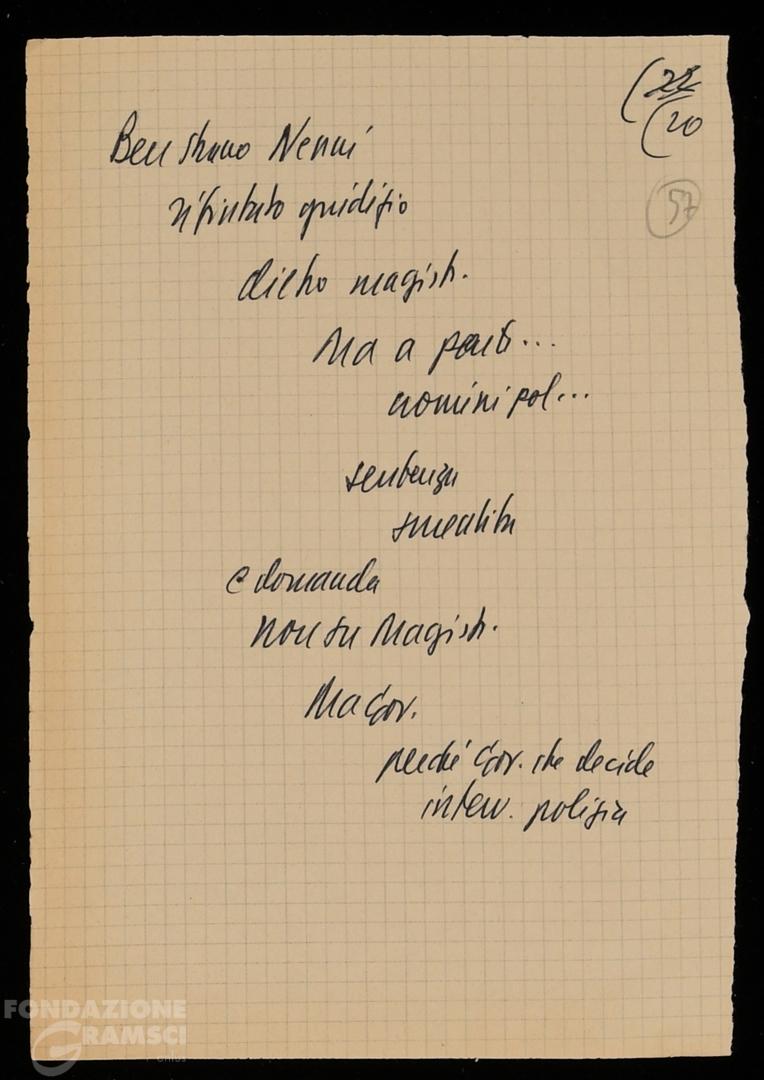 (22
(20
57
Ben strano Nenni
rifiutato giudizio
dietro magistr.
Ma a parte...
uomini pol...
sentenza
smentita
e domanda
non su Magistr.
Ma Gov.
perché Gov. che decide
interv. polizia
FONDAZIONE
GRAMSCI
onlus